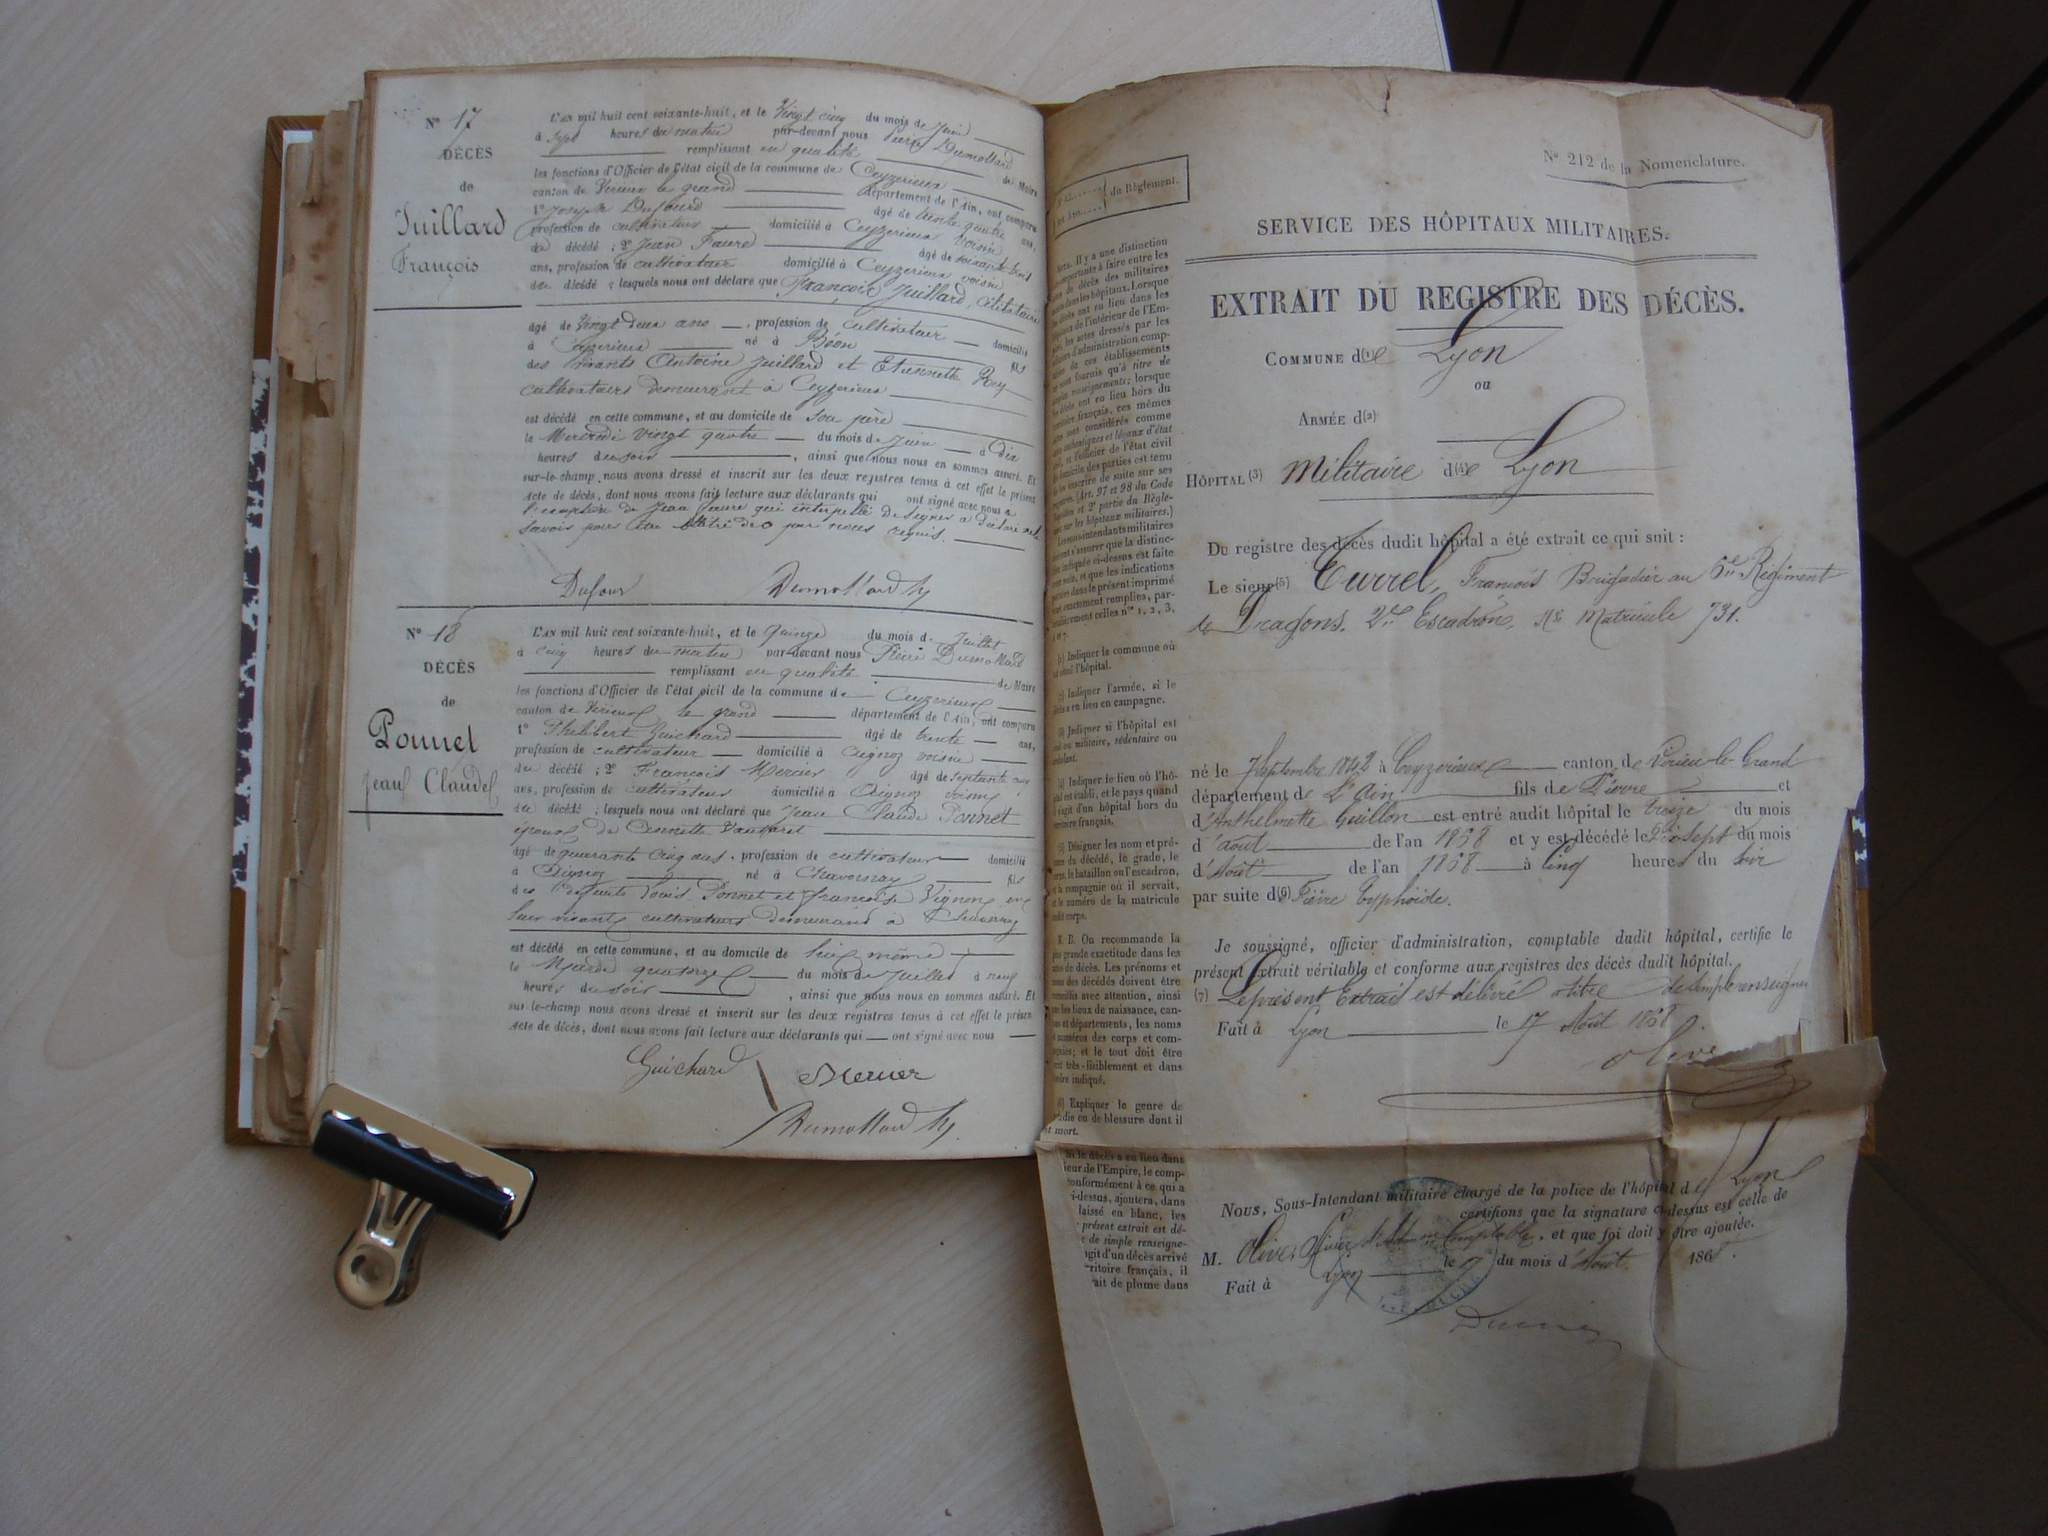 N° 17
DÉCÈS
de
Juillard
François
L'an mil huit cent soixante-huit, et le Vingt cinq du mois de Juin
à Sept heures du matin par-devant nous Pierre Dumollard
remplissant en qualité de Maire
les fonctions d'Officier de l'état civil de la commune de Ceyzerieux
canton de Virieux le grand département de l'Ain, ont comparu
1° Joseph Dufour âgé de trente quatre ans,
profession de cultivateur domicilié à Ceyzerieux voisin
du décédé ; 2° Jean Faure âgé de soixante huit
ans, profession de cultivateur domicilié à Ceyzerieux voisin
du décédé ; lesquels nous ont déclaré que François Juillard, célibataire
âgé de Vingt deux ans, profession de cultivateur domicilié
à Ceyzerieux né à Béon fils
des vivants Antoine Juillard et Etiennette Rey
cultivateurs demeurant à Ceyzerieux
est décédé en cette commune, et au domicile de son père
le Mercredi vingt quatre du mois de Juin à dix
heures du soir, ainsi que nous nous en sommes assuré. Et
sur-le-champ nous avons dressé et inscrit sur les deux registres tenus à cet effet le présent
Acte de décès, dont nous avons fait lecture aux déclarants qui ont signé avec nous à
l'exception de Jean Faure qui interpellé de signer a déclaré ne le
savoir pour être illitéré de par nous requis.
Dufour Dumollard
N° 18
DÉCÈS
de
Ponnet
Jean Claude
L'an mil huit cent soixante-huit, et le Quinze du mois de Juillet
à cinq heures du matin par-devant nous Pierre Dumollard
remplissant en qualité de Maire
les fonctions d'Officier de l'état civil de la commune de Ceyzerieux
canton de Virieux le grand département de l'Ain, ont comparu
1° Philibert Guichard âgé de trente ans,
profession de cultivateur domicilié à Aignoz voisin
du décédé ; 2° François Mercier âgé de septante
ans, profession de cultivateur domicilié à Aignoz voisin
du décédé ; lesquels nous ont déclaré que Jean Claude Ponnet
époux de
âgé de quarante cinq ans, profession de cultivateur domicilié
à Aignoz né à Chavornay fils
des défunts Louis Ponnet et Françoise Vignon en
leur vivant cultivateurs demeurand à Chavornay
est décédé en cette commune, et au domicile de lui même
le Mardi quatorze du mois de Juillet à neuf
heures du soir, ainsi que nous nous en sommes assuré. Et
sur-le-champ nous avons dressé et inscrit sur les deux registres tenus à cet effet le présent
Acte de décès, dont nous avons fait lecture aux déclarants qui ont signé avec nous
Guichard Mercier
Dumollard
du Règlement.
N° 212 de la Nomenclature.
SERVICE DES HÔPITAUX MILITAIRES.
EXTRAIT DU REGISTRE DES DÉCÈS.
COMMUNE d(1)e Lyon
ou
ARMÉE d(2)
HÔPITAL (3) Militaire d(4)e Lyon
Du registre des décès dudit hôpital a été extrait ce qui suit :
Le sieur(5) Turrel, François Brigadier au 6e Régiment
de Dragons. 2e Escadron, N° Matricule 731.
né le 7 Septembre 1842 à Ceyzerieux canton de Virieu-le-Grand
département de L'Ain fils de Pierre et
d'Anthelmette Guillon est entré audit hôpital le treize du mois
d'août de l'an 1868 et y est décédé le dix sept du mois
d'Août de l'an 1868 à Cinq heures du soir
par suite d(6) Fièvre typhoïde.
Je soussigné, officier d'administration, comptable dudit hôpital, certifie le
présent extrait véritable et conforme aux registres des décès dudit hôpital.
(7) Le présent Extrait est délivré à titre de simple renseigne
Fait à Lyon le 17 Août 1868.
Olive
Nous, Sous-Intendant militaire chargé de la police de l'hôpital de Lyon
certifions que la signature ci-dessus est celle de
M. Olive, Comptable, et que foi doit y être ajoutée.
Fait à Lyon le 17 du mois d'Août 1868.
Nota. Il y a une distinction
importante à faire entre les
actes de décès des militaires
morts dans les hôpitaux. Lorsque
les décès ont eu lieu dans les
hôpitaux de l'intérieur de l'Em-
pire, les actes dressés par les
officiers d'administration comp-
tables de ces établissements
ne sont fournis qu'à titre de
simples renseignements; lorsque
les décès ont eu lieu hors du
territoire français, ces mêmes
actes sont considérés comme
authentiques et légaux d'état
civil, et l'officier de l'état civil
du domicile des parties est tenu
de les inscrire de suite sur ses
registres. (Art. 97 et 98 du Code
Napoléon et 2e partie du Règle-
ment sur les hôpitaux militaires.)
Les sous-intendants militaires
doivent s'assurer que la distinc-
tion indiquée ci-dessus est faite
avec soin, et que les indications
portées dans le présent imprimé
sont exactement remplies, par-
ticulièrement celles nos 1, 2, 3,
4 et 7.
(1) Indiquer la commune où
est situé l'hôpital.
(2) Indiquer l'armée, si le
décès a eu lieu en campagne.
(3) Indiquer si l'hôpital est
civil ou militaire, sédentaire ou
ambulant.
(4) Indiquer le lieu où l'hô-
pital est établi, et le pays quand
il s'agit d'un hôpital hors du
territoire français.
(5) Désigner les nom et pré-
noms du décédé, le grade, le
corps, le bataillon ou l'escadron,
la compagnie où il servait,
et le numéro de la matricule
dudit corps.
N. B. On recommande la
plus grande exactitude dans les
actes de décès. Les prénoms et
noms des décédés doivent être
recueillis avec attention, ainsi
que les lieux de naissance, can-
tons et départements, les noms
et numéros des corps et com-
pagnies; et le tout doit être
écrit très-lisiblement et dans
l'ordre indiqué.
(6) Expliquer le genre de
maladie ou de blessure dont il
est mort.
si le décès a eu lieu dans
l'intérieur de l'Empire, le comp-
conformément à ce qui a
ci-dessus, ajoutera, dans
laissé en blanc, les
présent extrait est dé-
de simple renseigne-
s'agit d'un décès arrivé
territoire français, il
trait de plume dans